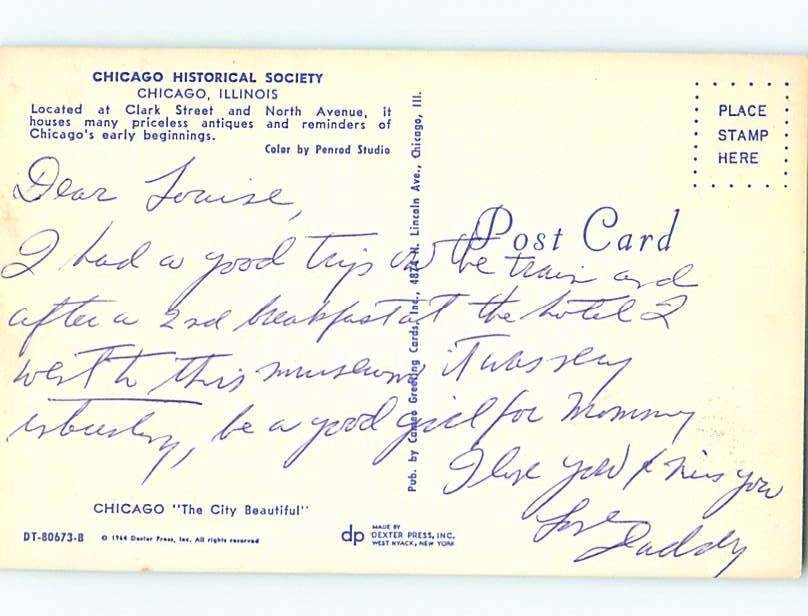 CHICAGO HISTORICAL SOCIETY
CHICAGO, ILLINOIS
Located at Clark Street and North Avenue, it
houses many priceless antiques and reminders of
Chicago's early beginnings.
Color by Penrod Studio
Dear Louise,
I had a good trip on the train and
after a 2nd breakfast at the hotel I
went to this museum it was very
be a good girl for Mommy
I love you & miss you
Love
Daddy
Pub. by Cameo Greeting Cards, Inc., 4874 N. Lincoln Ave., Chicago, Ill.
Post Card
PLACE
STAMP
HERE
CHICAGO "The City Beautiful"
DT-80673-B © 1964 Dexter Press, Inc. All rights reserved
dp MADE BY
DEXTER PRESS, INC.
WEST NYACK, NEW YORK